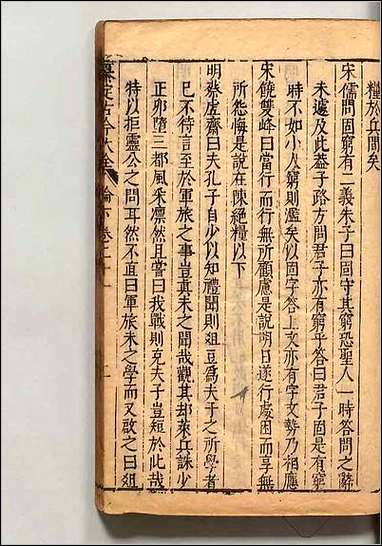 糧於兵間矣
宋儒問固窮有二義朱子曰固守其窮恐聖人一時答問之辭
未遽及此葢子路方問君子亦有窮乎答曰君子固是有窮
時不如小人窮則濫矣以固字答上文亦有字文勢乃相應
宋饒雙峰曰當行而行無所顧慮是說明日遂行處困而亨無
所怨悔是說在陳絕糧以下
明蔡虛齋曰夫孔子自少以知禮聞則俎豆為夫子之所學者
已不待言至於軍旅之事豈真未之聞哉觀其却萊兵誅少
正卯墮三都風采凜然且嘗曰我戰則克夫子豈短於此哉
特以拒靈公之問耳然不直曰軍旅未之學而又啟之曰俎
古今大全 論下卷二十一